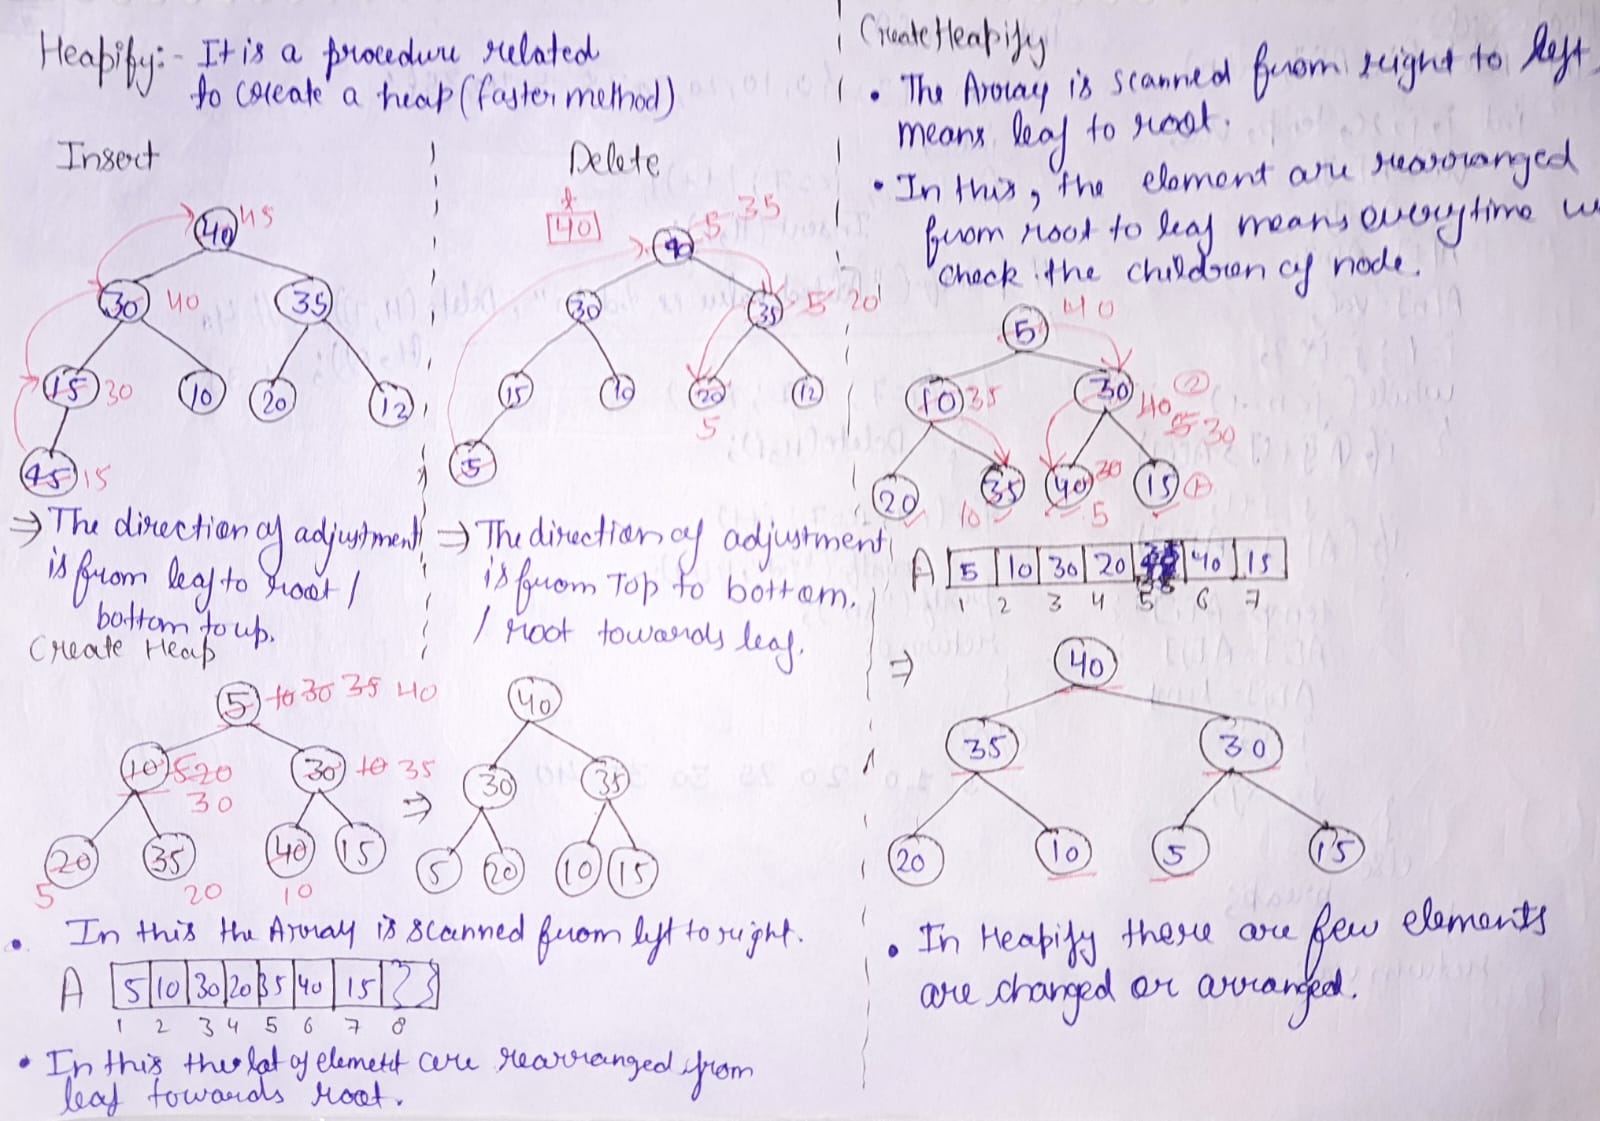 Heapify:- It is a procedure related
to create a heap (faster method)
Insert
40 45
30 40 35
15 30 10 20 12
45 15
⇒ The direction of adjustment
is from leaf to root /
bottom to up.
Delete
x
40
40 5 35
30 35 5 20
15 10 20 12
5
5
⇒ The direction of adjustment
is from Top to bottom.
/ root towards leaf.
Create Heap
5 10 30 35 40
10 5 20 30 10 35
30
20 35 40 15
5 20 10
⇒
40
30 35
5 20 10 15
• In this the Array is scanned from left to right.
A 5 10 30 20 35 40 15
1 2 3 4 5 6 7 8
• In this the lot of element are rearranged from
leaf towards root.
Create Heapify
• The Array is scanned from right to left
means leaf to root.
• In this, the element are rearranged
from root to leaf means everytime w
check the children of node.
5 40
10 35 30 40 ②
5 30
20 35 40 30 15 ①
10 5
A 5 10 30 20 35 40 15
1 2 3 4 5 6 7
⇒
40
35 30
20 10 5 15
• In Heapify there are few elements
are changed or arranged.